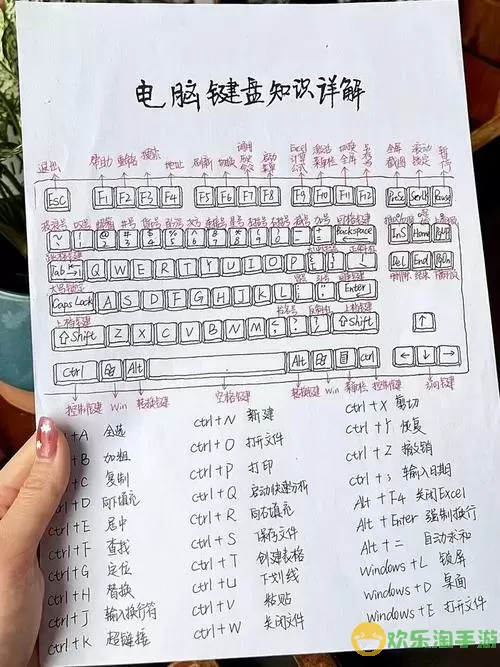 电脑键盘知识详解
退出 帮助 重命名 搜索 地址 刷新 切换 启动 Excel 全屏 滚动 暂停
截图 锁定
Esc F1 F2 F3 F4 F5 F6 F7 F8 F9 F10 F11 F12 PrtSc ScrLK Pause
~ ! @ # $ % ^ & * ( ) Backspace Ins Home PgUp
Tab Q W E R T Y U I O P Del End PgDn
大写锁定
Caps Lock A S D F G H J K L Enter
上档键
Shift Z X C V B N M Shift ↑
Ctrl Alt Alt Ctrl ← ↓ →
控制键 Win 转换键 空格键 转换键 Win 菜单栏 控制键 方向键
+A 全选
+B 加粗
+C 复制
ctrl+D 向下填充
ctrl+E 居中
ctrl+F 查找
ctrl+G 定位
ctrl+H 替换
ctrl+J 输入换行符
ctrl+K 超链接
ctrl+N 新建
ctrl+O 打开文件
ctrl+P 打印
ctrl+Q 启动快速分析
ctrl+R 向右填充
ctrl+S 保存文件
ctrl+T 创建表格
ctrl+U 下划线
ctrl+V 粘贴
ctrl+W 关闭文件
ctrl+X 剪切
ctrl+Y 恢复
ctrl+Z 撤销
ctrl+; 输入日期
Alt+F4 关闭Excel
Alt+Enter 强制换行
Alt+= 自动求和
windows+L 锁屏
windows+D 桌面
windows+E 打开文件
欢乐淘手游